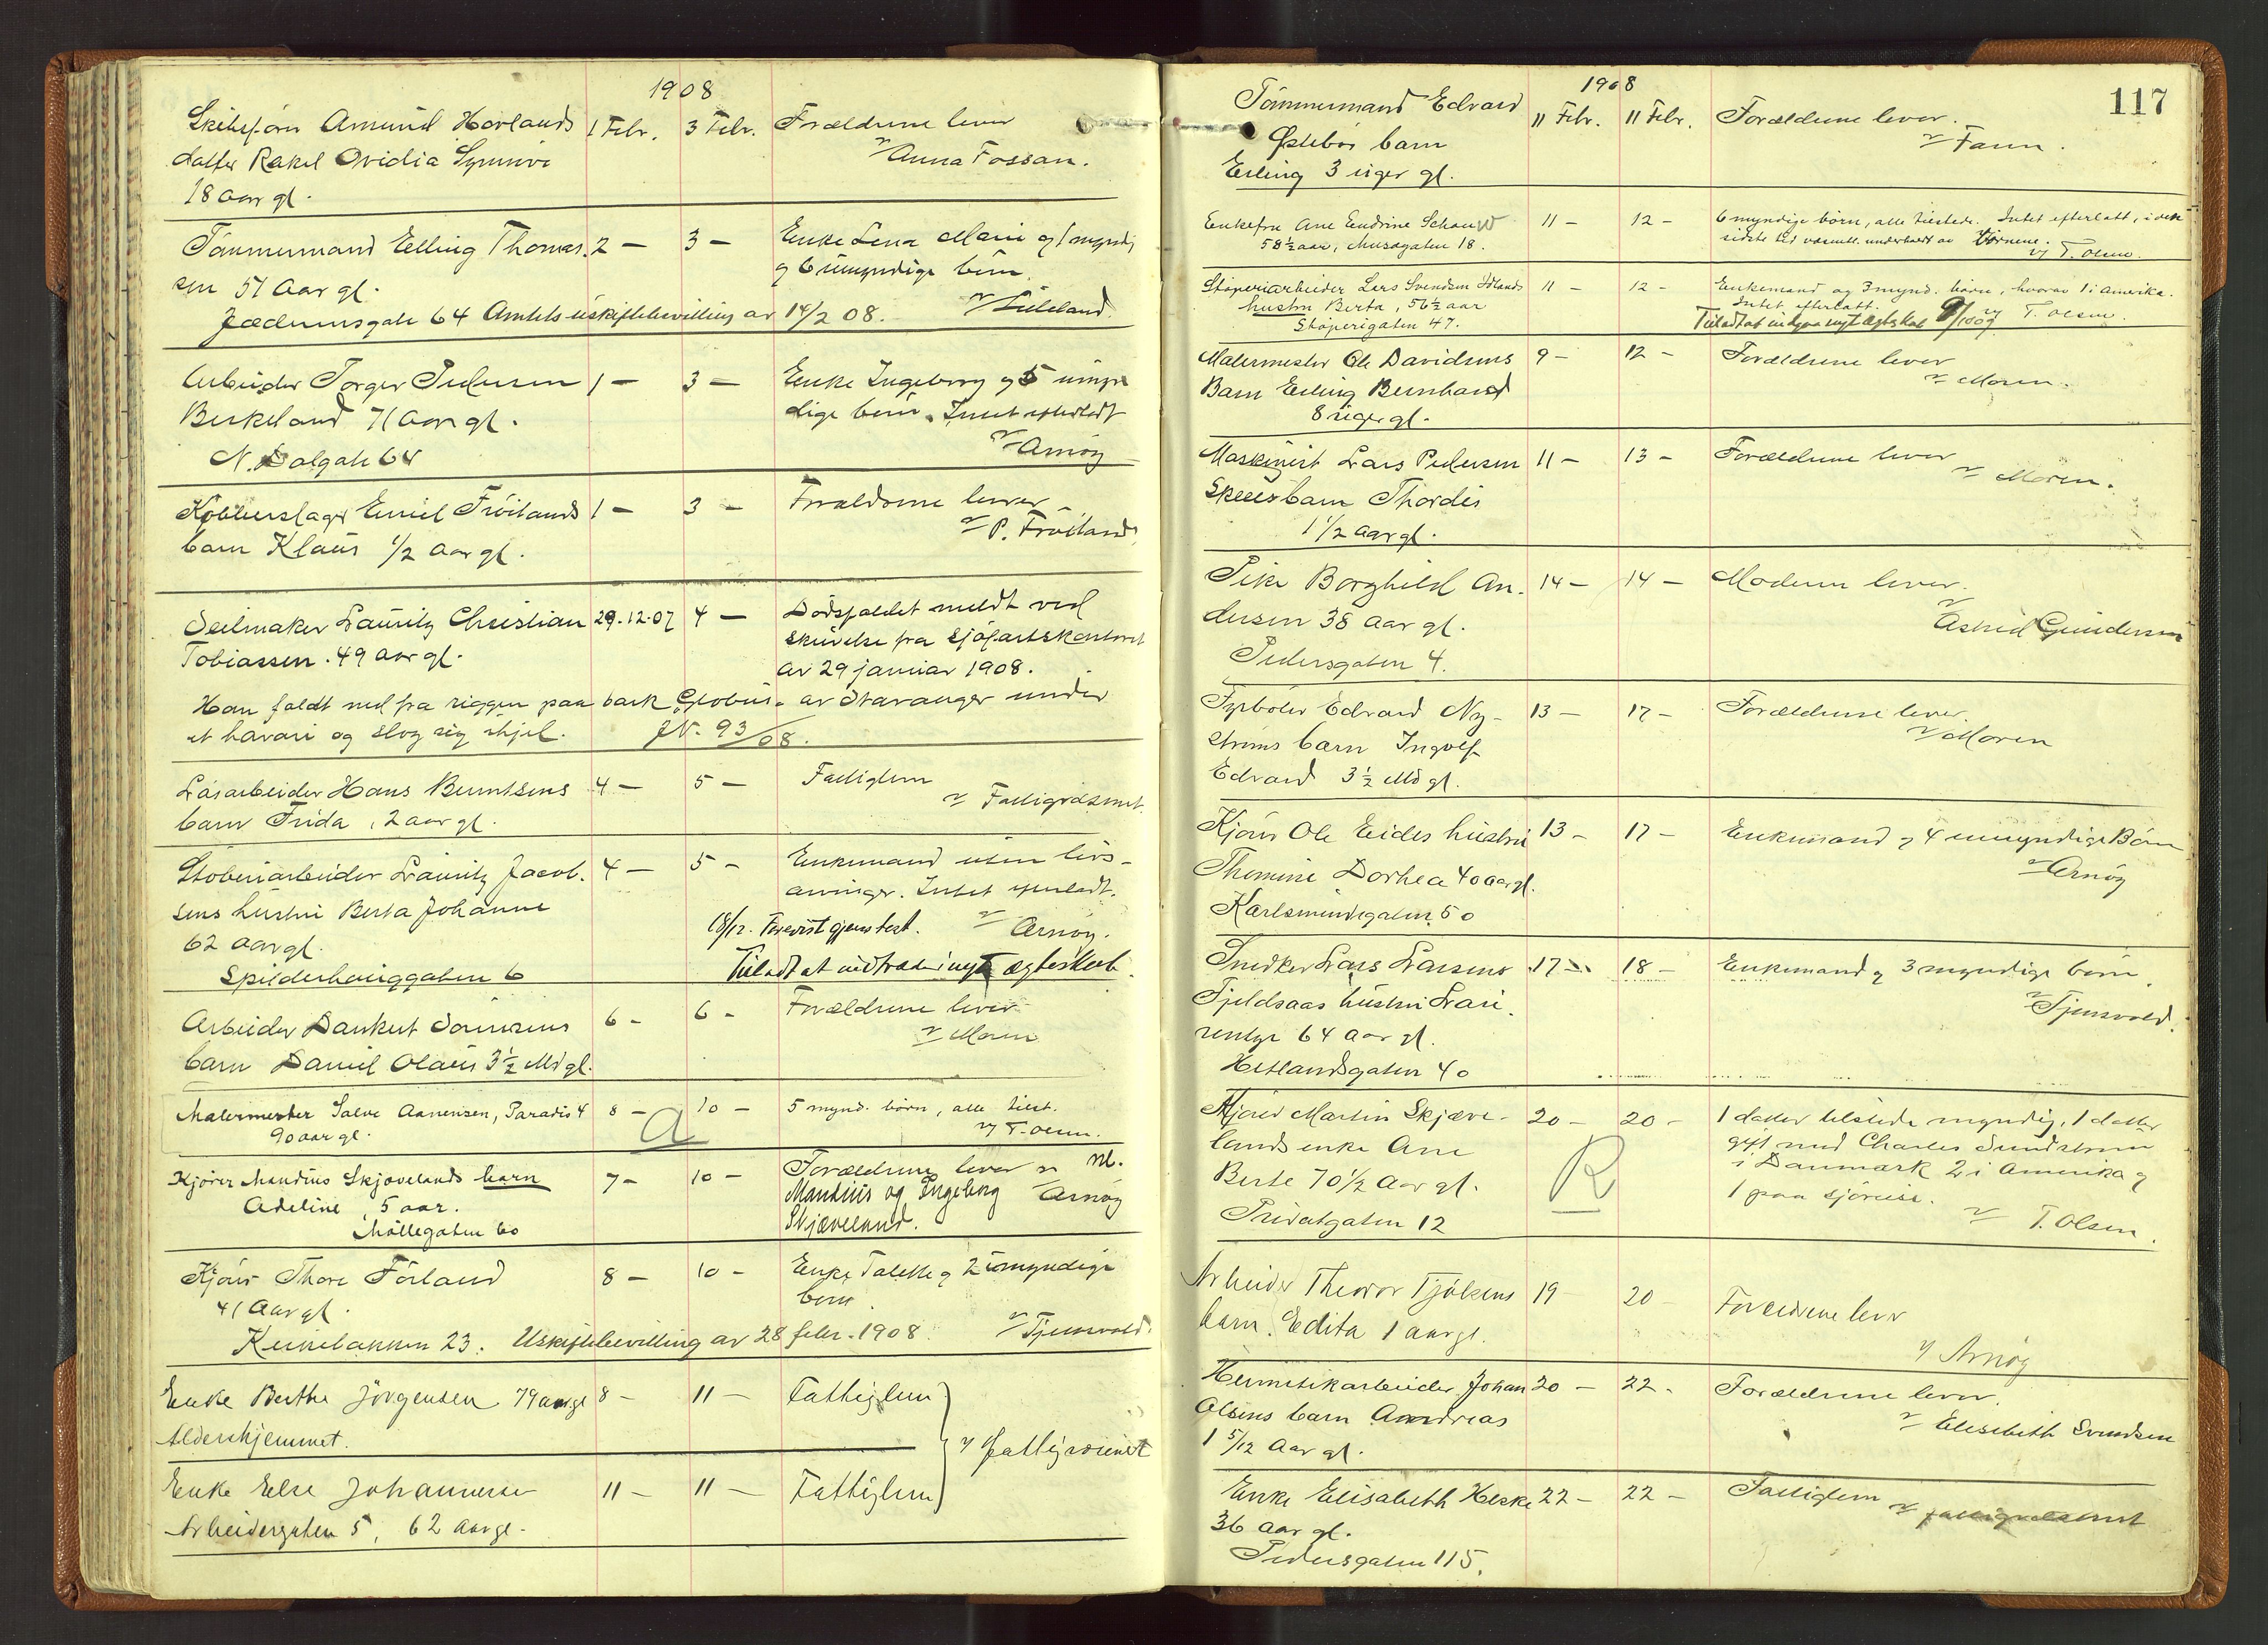 1908
Skibsfører Amund Hovlands 1 Febr. 3 Febr. Forældrene lever
datter Rakel Ovidia Synnøve v/ Anna Fossan.
18 aar gl.
Tømmermand Elling Thomas. 2 — 3 — Enke Lena Marie og 1 myndig
sen 51 Aar gl. og 6 umyndige børn.
Jædernsgate 64 Amtets uskiftebevilling av 14/2 08. v/
Arbeider Torger Pedersen 1 — 3 — Enke Ingeborg og 5 umyn
Birkeland 71 Aar gl. dige børn. Intet efterladt
N. Dalgate 64 v/ Arnøy
Kobberslager Emil Frøilands 1 — 3 — Forældrene lever
barn Klaus 1/2 Aar gl. v/ P. Frøiland
Seilmaker Lauritz Christian 29.12.07 4 — Dødsfaldet meldt ved
Tobiassen. 49 aar gl. skrivelse fra Sjøfartskontoret
av 29 januar 1908.
Han faldt ned fra riggen paa bark "Globus" av Stavanger under
et havari og slog sig ihjel. J.N. 93/08.
Løsarbeider Hans Berntsens 4 — 5 — Fattiglem
barn Frida, 2 aar gl. v/ Fattigvæsenet
Støberiarbeider Lauritz Jacob. 4 — 5 — Enkemand uten livs-
sens hustru Berta Johanne arvinger. Intet efterladt.
62 aar gl. 18/12. Forevist gjens. test. v/ Arnøy.
Spilderhauggaten 6 Tilladt at indtræde i nyt ægteskab.
Arbeider Dankert Sørensens 6 — 6 — Forældrene lever
barn Daniel Olaus 3 1/2 Md gl. v/ Moren
Malermester Salve Aanensen, Paradis 4 8 — 10 — 5 mynd. børn, alle tilst.
90 aar gl. a v/ T. Olsen.
Kjører Mandius Skjævelands barn 7 — 10 — Forældrene lever
Adeline, 5 aar. Mandius og Ingeborg v/ Arnøy
Møllegaten 60 Skjæveland.
Kjører Thore Førland 8 — 10 — Enke Talette og 2 umyndige
41 Aar gl. børn.
23. Uskiftebevilling av 28 febr. 1908. v/ Tjensvold.
Enke Berthe Jørgensen 79 aar gl 8 — 11 — Fattiglem
Aldershjemmet. v/ Fattigvæsenet
Enke Else Johannesen 11 — 11 — Fattiglem
Arbeidergaten 5, 62 Aar gl.
1908
117
Tømmermand Edvard 11 Febr. 11 Febr. Forældrene lever.
Østebøs barn v/ Faren.
Erling 3 uger gl.
Enkefru Ane Endrine Schauw 11 — 12 — 6 myndige børn, alle tilstede. Intet efterlatt, i den
58 1/2 aar, Musægaten 18. sidste tid væsentl. underholdt av børnene.
v/ T. Olsen.
Støperiarbeider Lars Svendsen Idlands 11 — 12 — Enkemand og 3 mynd. børn, hvorav 1 i Amerika.
hustru Berta, 56 1/2 aar Intet efterlatt.
Støperigaten 47. Tilladt at indgaa nyt ægteskab v/ T. Olsen.
Malermester Ole Davidsens 9 — 12 — Forældrene lever
Barn Erling Bernhard v/ Moren.
8 uger gl.
Maskinist Lars Pedersen 11 — 13 — Forældrene lever
Skeies barn Thordis v/ Moren.
1 1/2 aar gl.
Pike Borghild An. 14 — 14 — Moderen lever.
dersen 38 Aar gl. v/ Astrid Gundersen
Pedersgaten 4.
Fyrbøter Edvard Ny- 13 — 17 — Forældrene lever.
strøms barn Ingolf v/ Moren
Edvard 3 1/2 Md gl.
Kjører Ole Eides hustru 13 — 17 — Enkemand og 4 umyndige Børn
Thomine Dorthea 40 aar gl. v/ Arnøy
Karlsminnegaten 50
Snedker Lars Larsens 17 — 18 — Enkemand og 3 myndige børn.
Fjeldsaas hustru v/ Tjensvold.
64 Aar gl.
Hetlandsgaten 40
Kjører Martin Skjæve- 20 — 20 — 1 datter tilstede myndig, 1 datter
lands enke Ane R gift med Charles Sundstrøm
Berte 70 1/2 Aar gl. i Danmark 2 i Amerika og
Privatgaten 12 1 paa sjøreise.
v/ T. Olsen.
Arbeider Theodor Tjølsens 19 — 20 — Forældrene lever
barn. Edita 1 aar gl. v/ Arnøy
Hermetikarbeider Johan 20 — 22 — Forældrene lever.
Olsens barn Andreas v/ Elisebeth Svendsen
1 5/12 Aar gl.
Enke Elisabeth Heske 22 — 22 — Fattiglem
36 Aar gl. v/ fattigvæsenet
Pedersgaten 115.